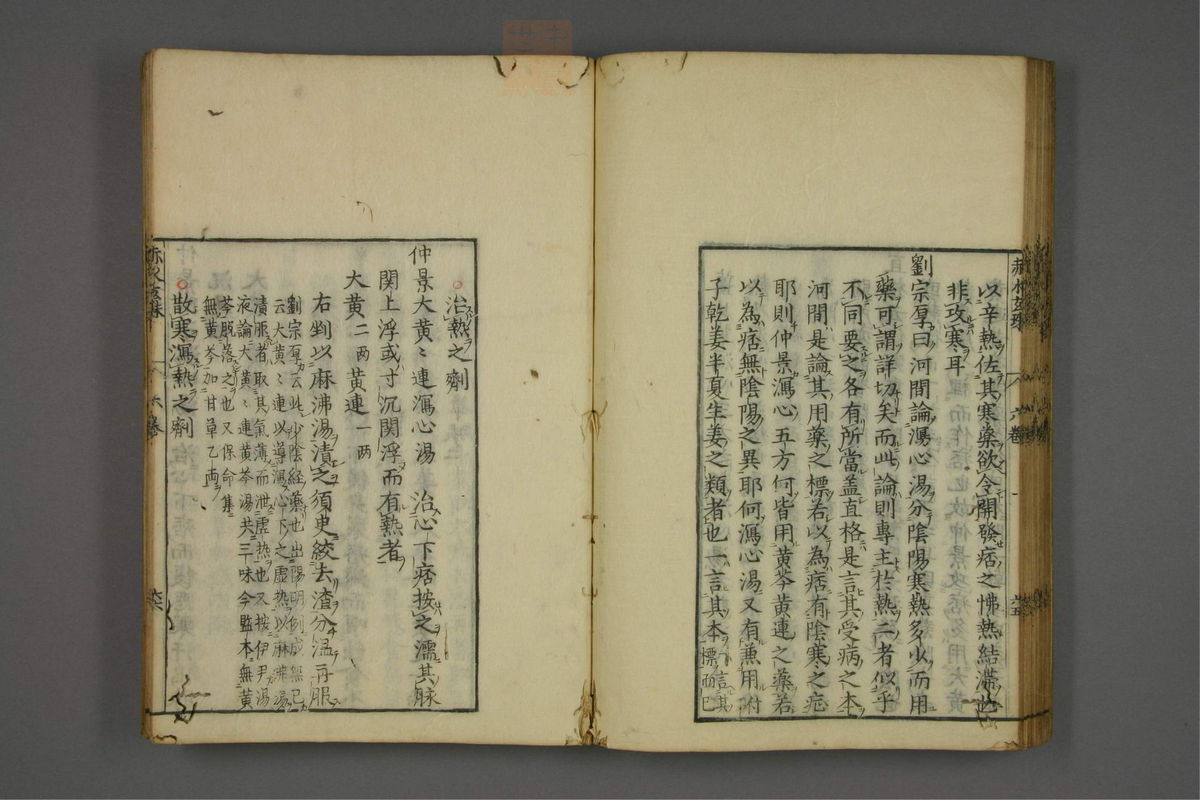 以辛熱佐其寒藥欲令開發痞之怫熱結滯
非攻寒耳
劉宗厚曰河間論瀉心湯分陰陽寒熱多少而用
藥可謂詳切矣而此論則專主於熱二者似乎
不同要之各有所當盖直格是言其受病之本
河間是論其用藥之標若以為痞有陰寒之
耶則仲景瀉心五方何皆用黄芩黄連之藥若
以為痞無陰陽之異耶何瀉心湯又有兼用附
子乾姜半夏生姜之類者也一言其本一言其標而已
治熱之劑
仲景大黄〻連瀉心湯 治心下痞按之濡其脉
関上浮或寸沉関浮而有熱者
大黄二両黄連一両
右剉以麻沸湯漬之須臾絞去渣分温再服
劉宗厚云此少陰経藥也出陽明例成無已
云大黄〻連以導瀉心下之虚熱以麻沸湯
漬服者取其氣薄而泄虚熱也又按伊尹湯
液論大黄〻連黄芩湯共三味今監本無黄
芩脱落之也又保命集
無黄芩加甘草乙両
散寒瀉熱之劑
六巻
六巻